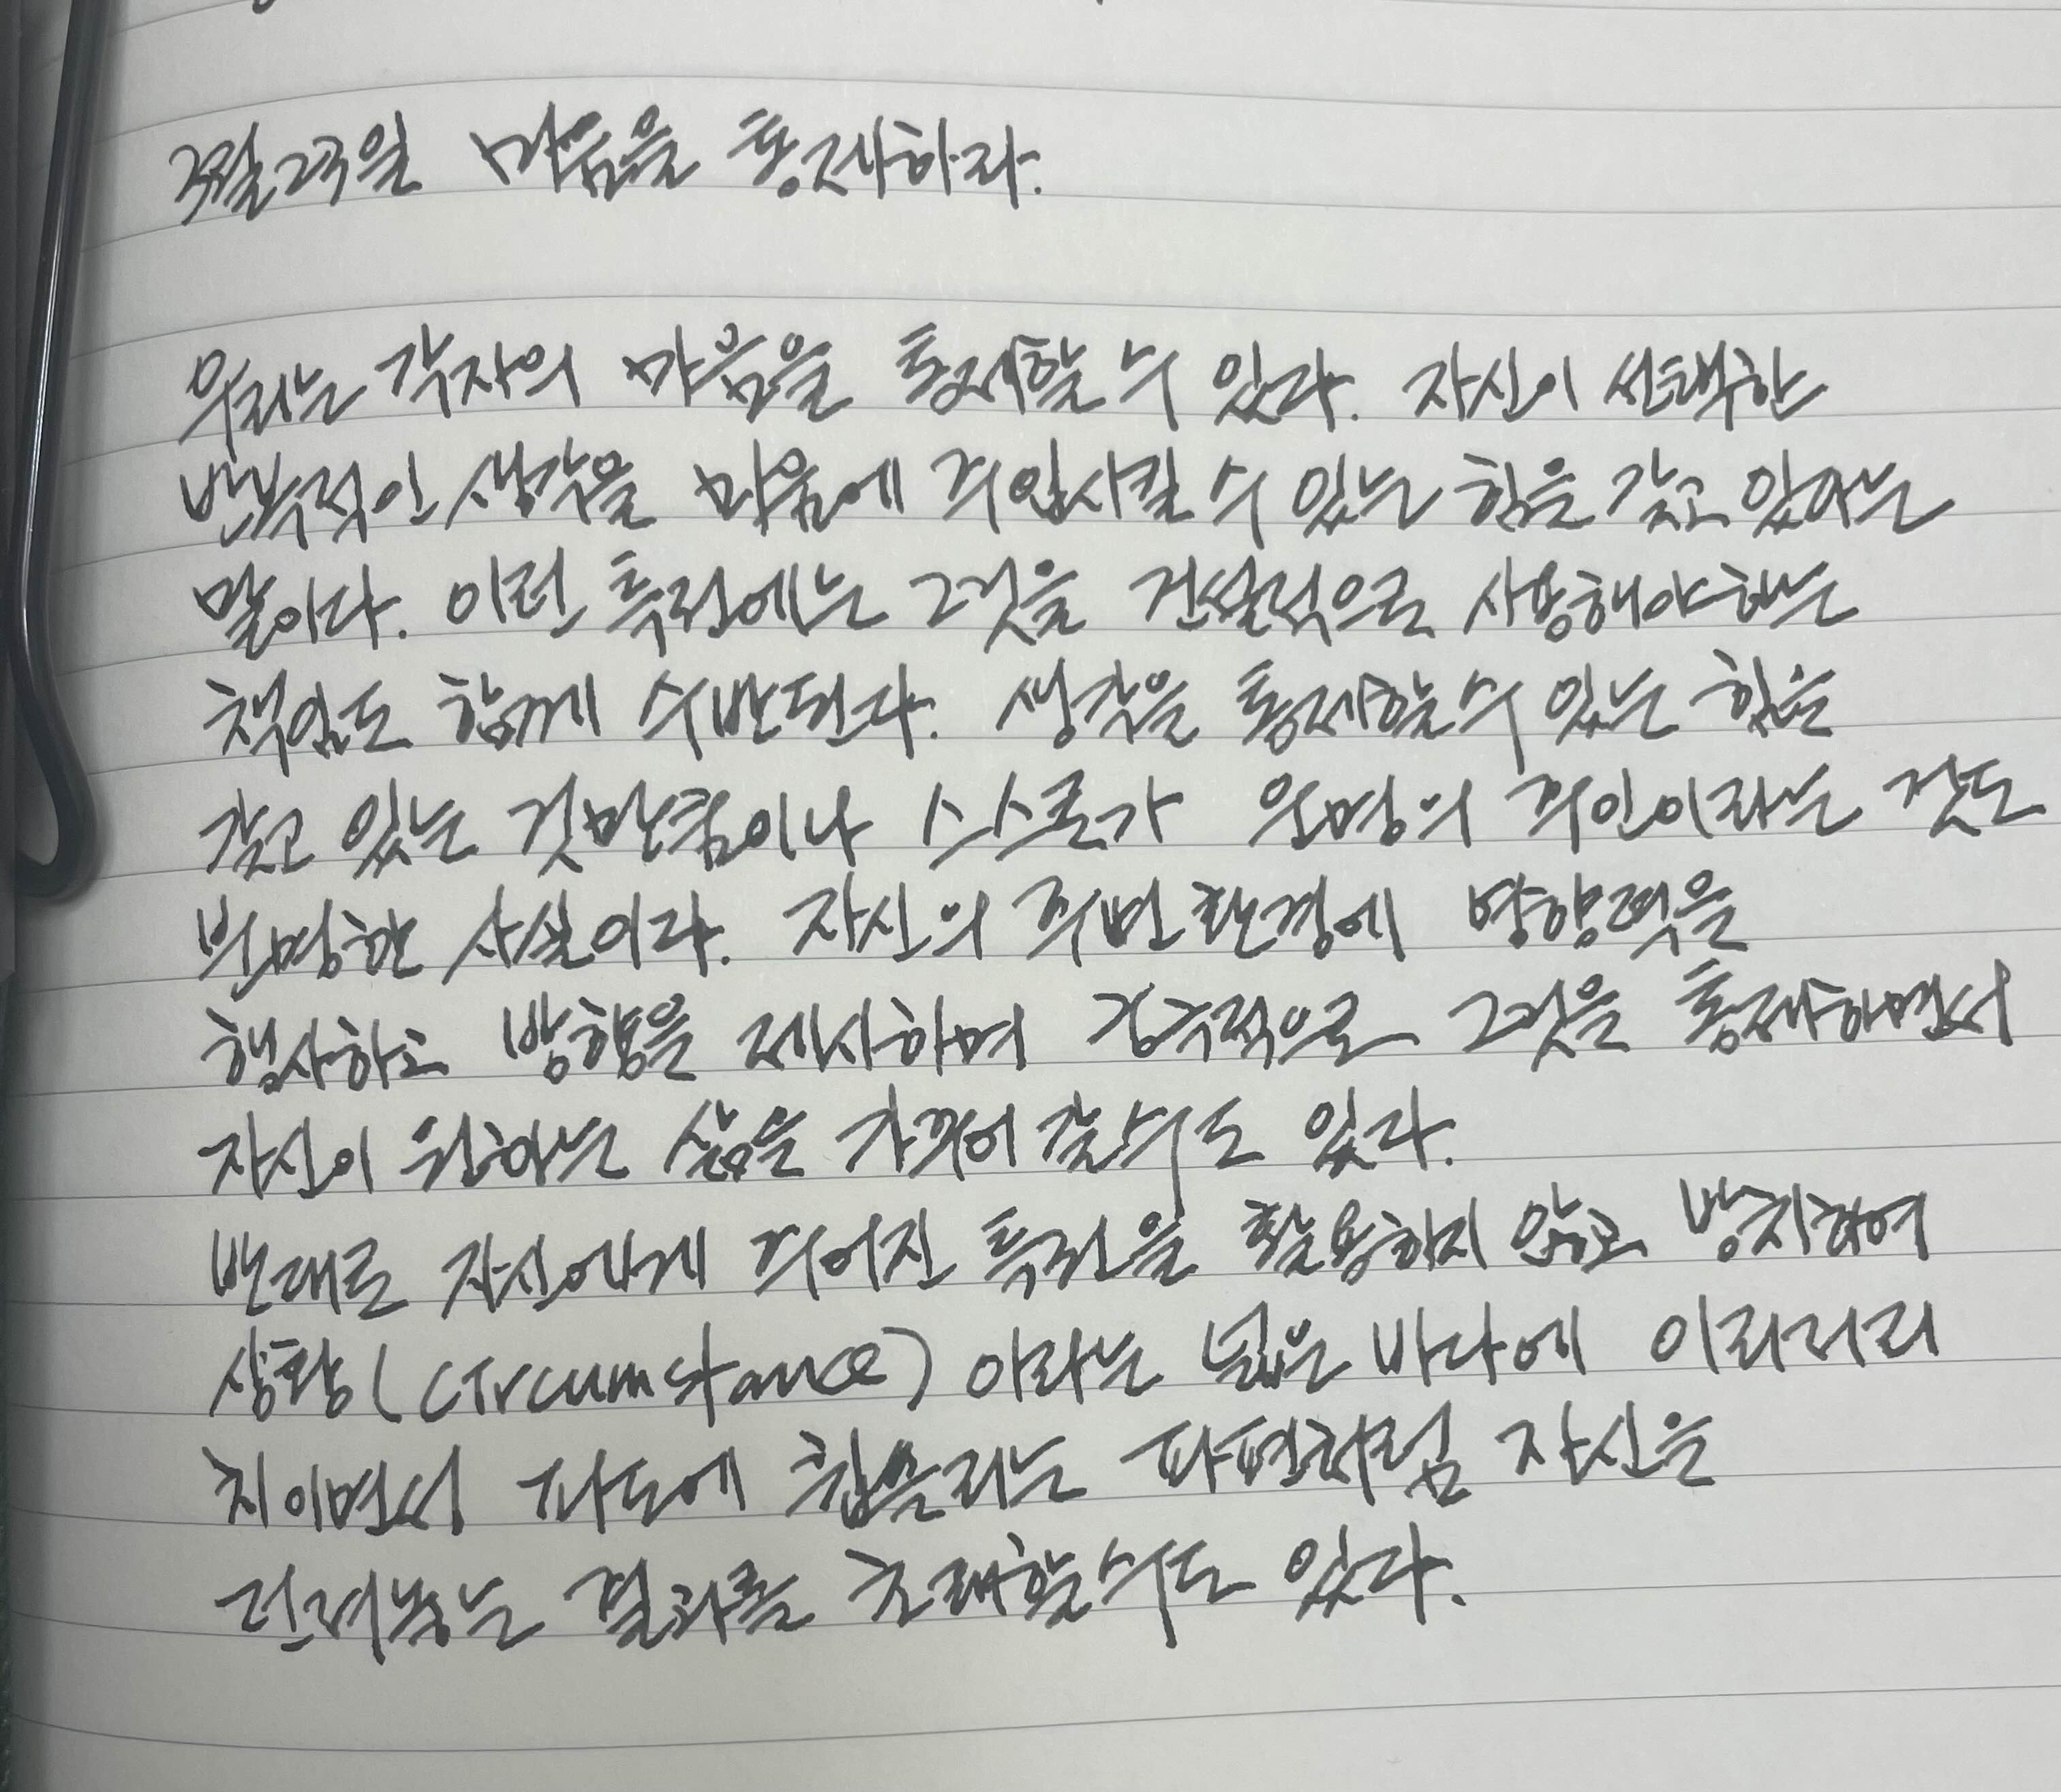 3월23일 마음을 통제하라.
우리는 각자의 마음을 통제할 수 있다. 자신이 선택한
반복적인 생각을 마음에 주입시킬 수 있는 힘을 갖고 있어는
말이다. 이런 특권에는 그것을 건설적으로 사용해야 하는
책임도 함께 수반된다. 생각을 통제할 수 있는 힘을
갖고 있는 것만큼이나 스스로가 운명의 주인이라는 것도
분명한 사실이다. 자신의 주변 환경에 영향력을
행사하고 방향을 제시하며 궁극적으로 그것을 통제하면서
자신이 원하는 삶을 가꾸어 갈 수도 있다.
반대로 자신에게 주어진 특권을 활용하지 않고 방치하여
상황(circumstance) 이라는 넓은 바다에 이리저리
치이면서 파도에 휩쓸리는 파편처럼 자신을
던져놓는 결과를 초래할 수도 있다.